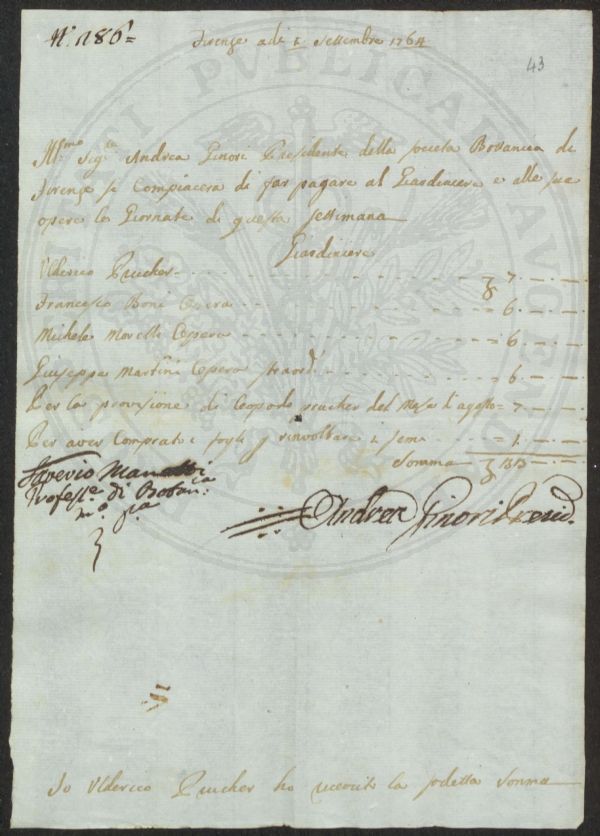 N.° 186 =
Firenze adi 1 Settembre 1764
43
Ill.mo Sig.re Andrea Ginori Presidente della società Bottanica di
Firenze si Compiacerà di far pagare al Giardiniere e alle sue
opere le Giornate di questa settimana
Giardiniere
Ulderico Prucher 7
Francesco Boni Opera 6
Michele Morelli Opera 6
Giuseppe Martini Opera straord. 6
Per la provisione di Leopoldo Prucher del Mese d'agosto = 7
Per aver Comprato fogli p rinvoltare i semi = 1
Somma
Saverio Manetti
Profess.e di Botan.ca
m.o p.a
Andrea Ginori Presid.
Io Ulderico Prucher ho riceuto la sodetta Somma